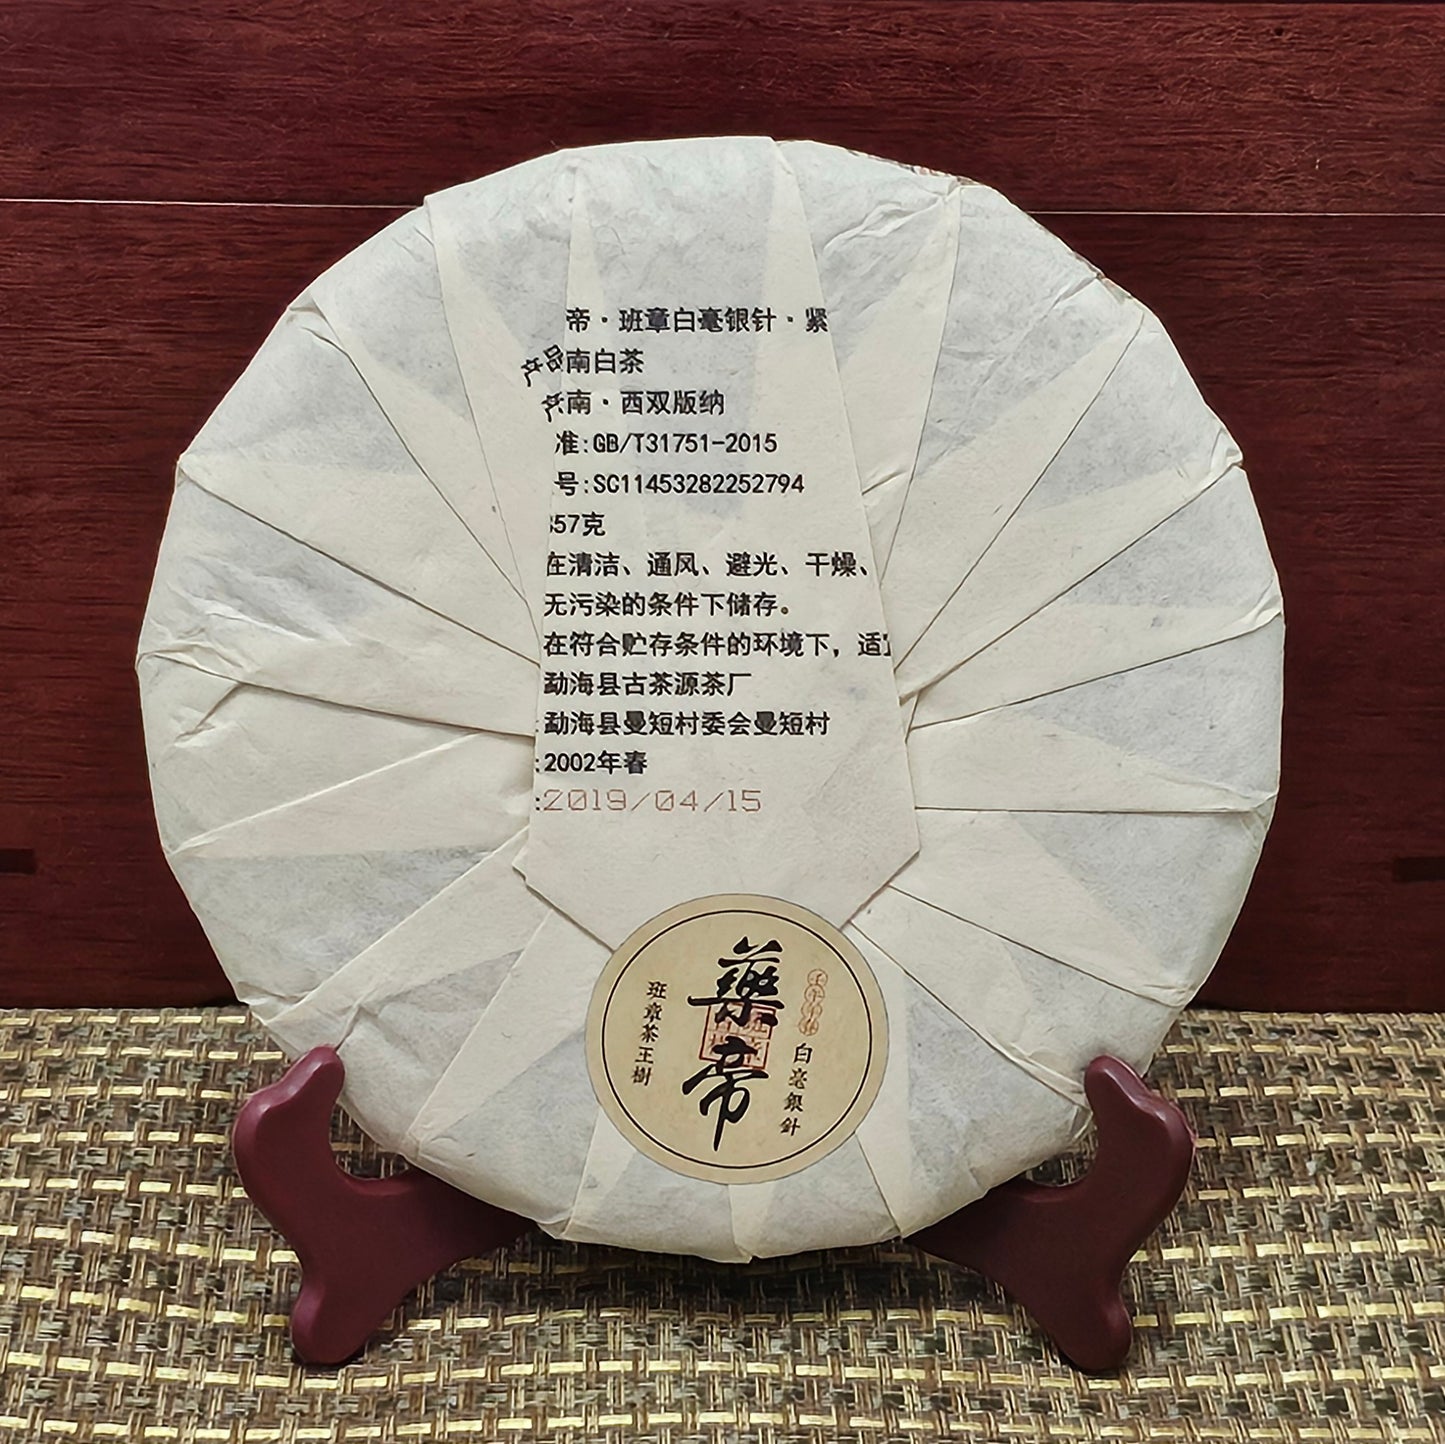 帝·班章白毫银针·紧
品南白茶
南·西双版纳
准:GB/T31751-2015
号:SC11453282252794
357克
在清洁、通风、避光、干燥、
无污染的条件下储存。
在符合贮存条件的环境下，适宜
勐海县古茶源茶厂
:勐海县曼短村委会曼短村
:2002年春
:2019/04/15
藥帝
班章茶王樹
白毫銀針